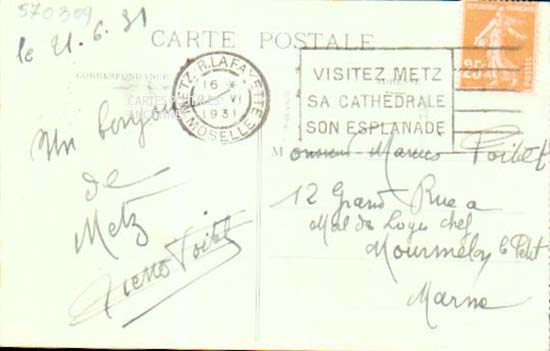 570309
le 21.6.31
CARTE POSTALE
CORRESPONDANCE
METZ R. LAFAYETTE
16
VI
1931
MOSELLE
VISITEZ METZ
SA CATHÉDRALE
SON ESPLANADE
REPUBLIQUE FRANÇAISE
25c
POSTES
CARTES POSTALES
Un bonjour
de
Metz
Monsieur Marcus
12 Grand Rue a
Mal des Logis chef
Mourmelon le Petit
Marne